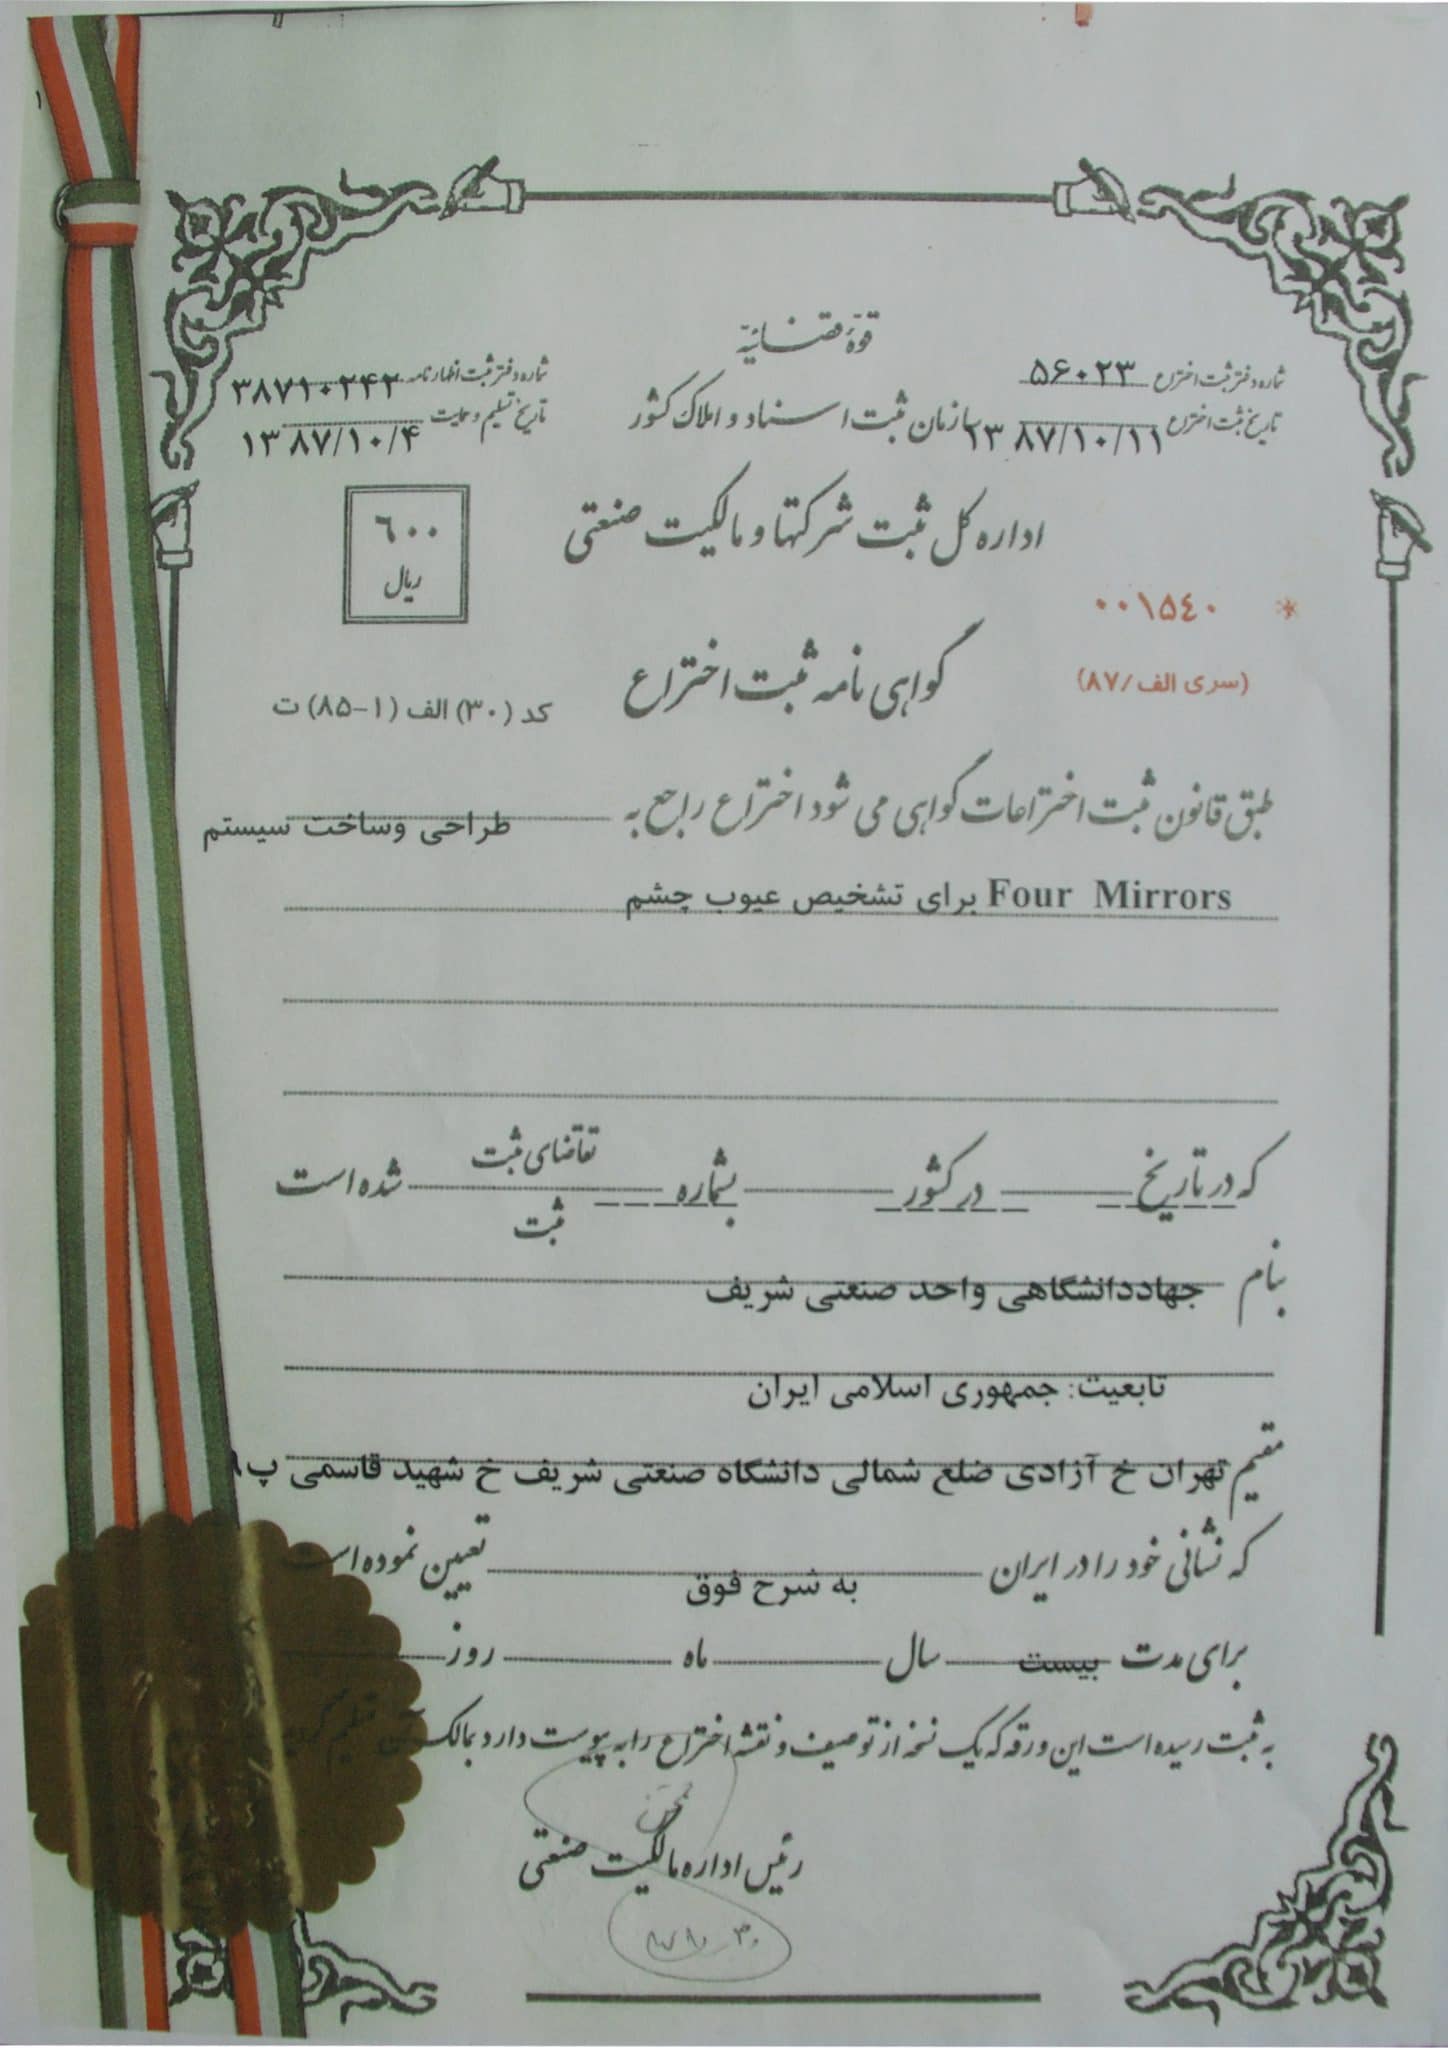 قوهٔ قضائیه
شماره دفتر ثبت اختراع ۵۶۰۲۳
شماره دفتر ثبت اظهارنامه ۳۸۷۱۰۲۴۲
سازمان ثبت اسناد و املاک کشور
تاریخ ثبت اختراع ۱۳۸۷/۱۰/۱۱
تاریخ تسلیم و حمایت ۱۳۸۷/۱۰/۴
اداره کل ثبت شرکتها و مالکیت صنعتی
۶۰۰
ریال
* ۰۰۱۵۴۰
(سری الف/۸۷)
گواهی نامه ثبت اختراع
کد (۳۰) الف (۱-۸۵) ت
طبق قانون ثبت اختراعات گواهی می شود اختراع راجع به طراحی وساخت سیستم
Four Mirrors برای تشخیص عیوب چشم
که در تاریخ در کشور بشماره تقاضای ثبت شده است
ثبت
بنام جهاددانشگاهی واحد صنعتی شریف
تابعیت: جمهوری اسلامی ایران
مقیم تهران خ آزادی ضلع شمالی دانشگاه صنعتی شریف خ شهید قاسمی پ
که نشانی خود را در ایران به شرح فوق تعیین نموده است
برای مدت بیست سال ماه روز
به ثبت رسیده است این ورقه که یک نسخه از توصیف و نقشه اختراع را به پیوست دارد بمالک
رئیس اداره مالکیت صنعتی